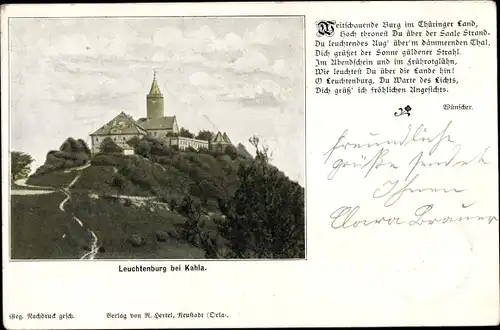 Weitschauende Burg im Thüringer Land,
Hoch thronest Du über der Saale Strand.
Du leuchtendes Aug' über'm dämmernden Thal,
Dich grüßet der Sonne güldener Strahl.
Im Abendschein und im Frührotglühn,
Wie leuchtest Du über die Lande hin!
O Leuchtenburg, Du Warte des Lichts,
Dich grüß' ich fröhlichen Angesichts.
Wünscher.
freundliche
Grüße sendet
Ihnen
Clara Bräuer
Leuchtenburg bei Kahla.
Ges. Nachdruck gesch.
Verlag von R. Hertel, Neustadt (Orla).